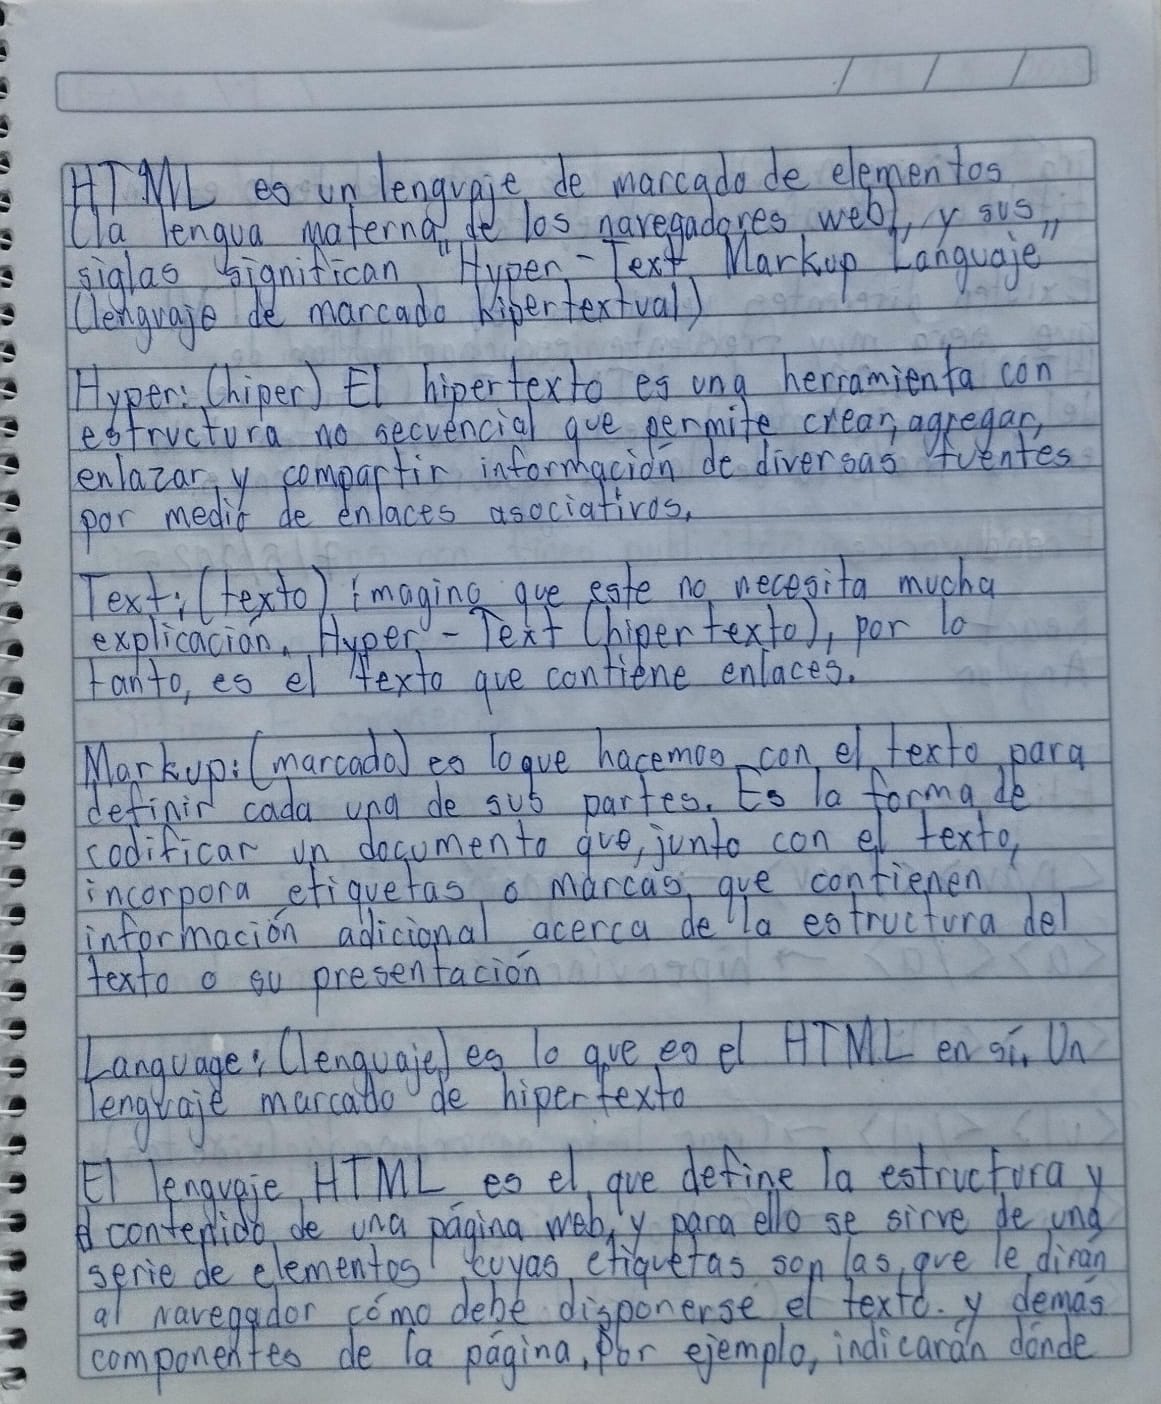 HTML es un lenguaje de marcado de elementos
(la lengua materna de los navegadores web), y sus
siglas significan "Hyper-Text Markup Languaje"
(lenguaje de marcado hipertextual)
Hyper: (hiper) El hipertexto es una herramienta con
estructura no secuencial que permite crear, agregar,
enlazar, y compartir información de diversas fuentes
por medio de enlaces asociativos.
Text: (texto) imagino que este no necesita mucha
explicación. Hyper-Text (hipertexto), por lo
tanto, es el texto que contiene enlaces.
Markup: (marcado) es lo que hacemos con el texto para
definir cada una de sus partes. Es la forma de
codificar un documento que, junto con el texto,
incorpora etiquetas o marcas que contienen
información adicional acerca de la estructura del
texto o su presentación
Language: (lenguaje) es lo que es el HTML en sí. Un
lenguaje marcado de hipertexto
El lenguaje HTML es el que define la estructura y
el contenido de una página web, y para ello se sirve de una
serie de elementos cuyas etiquetas son las que le dirán
al navegador cómo debe disponerse el texto. y demás
componentes de la página, Por ejemplo, indicarán dónde